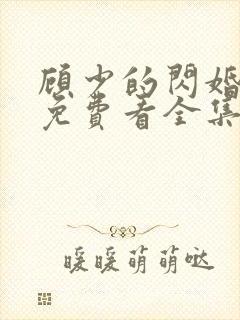 顾少的閃婚
免費看全集
暖暖萌萌哒